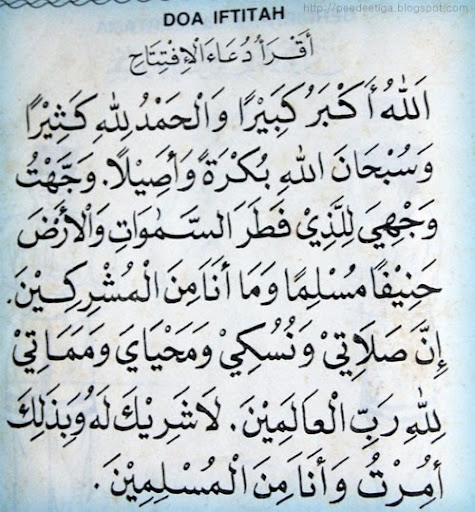 http://peedeetiga.blogspot.com
DOA IFTITAH
أَقْرَأُ دُعَاءَ الْإِفْتِتَاحِ
اَللهُ أَكْبَرُ كَبِيْرًا وَالْحَمْدُ لِلّٰهِ كَثِيْرًا
وَسُبْحَانَ اللهِ بُكْرَةً وَأَصِيْلًا. وَجَّهْتُ
وَجْهِيَ لِلَّذِيْ فَطَرَ السَّمٰوَاتِ وَالْأَرْضَ
حَنِيْفًا مُسْلِمًا وَمَا أَنَاَ مِنَ الْمُشْرِكِيْنَ.
إِنَّ صَلَاتِيْ وَنُسُكِيْ وَمَحْيَايَ وَمَمَاتِيْ
لِلّٰهِ رَبِّ الْعَالَمِيْنَ. لَا شَرِيْكَ لَهُ وَبِذٰلِكَ
أُمِرْتُ وَأَنَاَ مِنَ الْمُسْلِمِيْنَ.